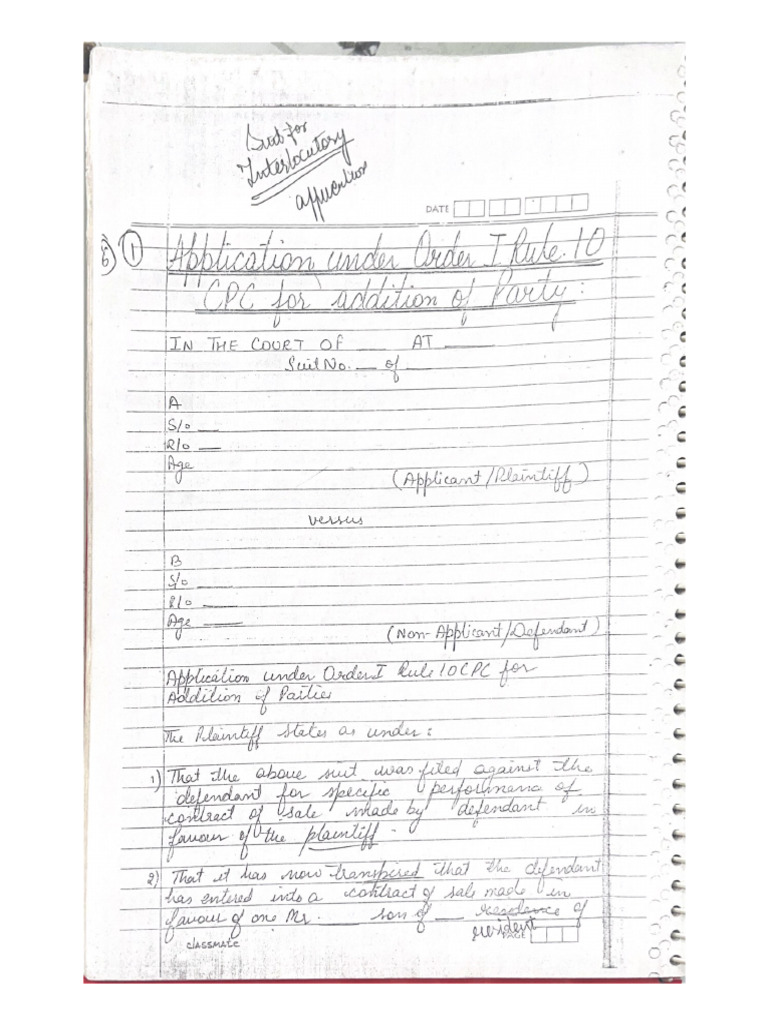 Suit for
Interlocutory
application
DATE
6) ① Application under Order I Rule 10
CPC for addition of Party:
IN THE COURT OF ___ AT ___
Suit No. __ of __
A
S/o __
R/o __
Age
(Applicant/Plaintiff)
versus
B
S/o ___
R/o ___
Age ___
(Non-Applicant/Defendant)
Application under Order I Rule 10 CPC for
Addition of Parties
The Plaintiff states as under:
1) That the above suit was filed against the
defendant for specific performance of
contract of sale made by defendant in
favour of the plaintiff.
2) That it has now transpired that the defendant
has entered into a contract of sale made in
favour of one Mr. ___ son of __ residence of
resident
CLASSMATE
PAGE